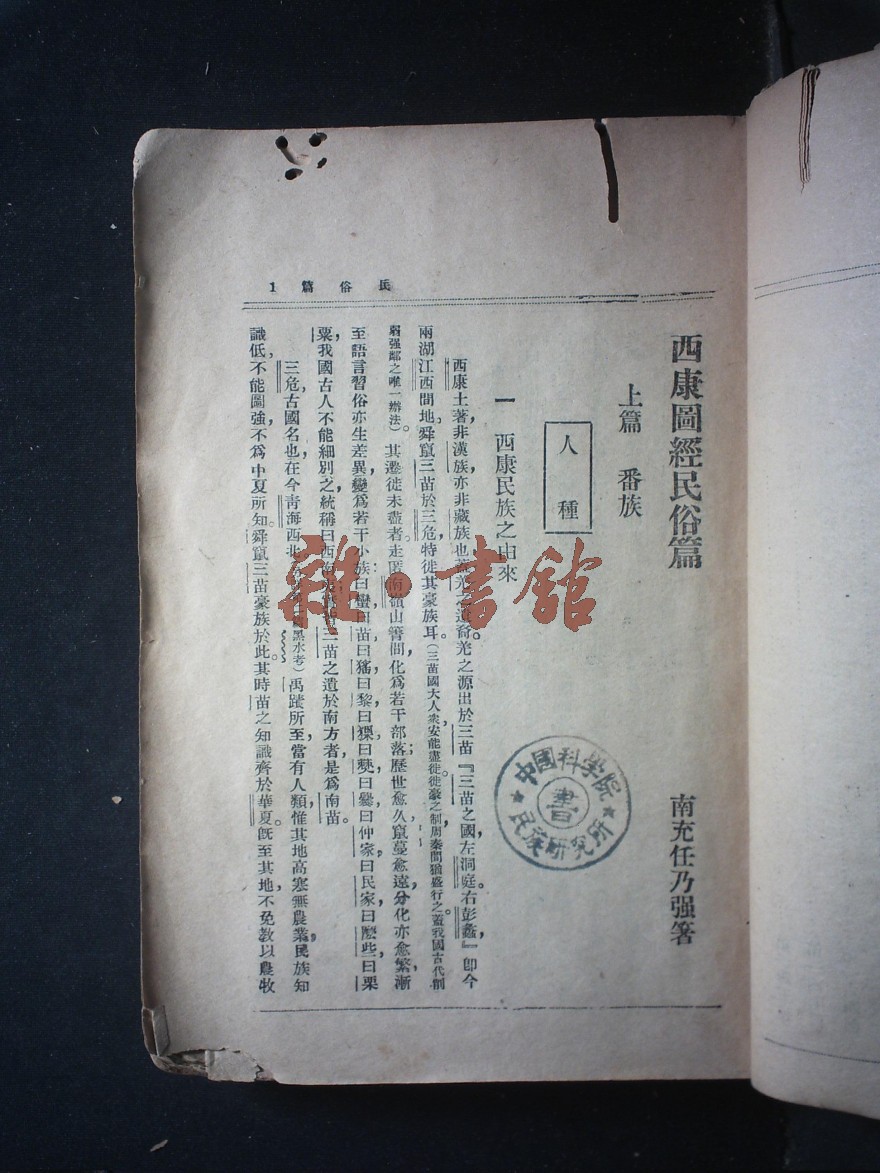 民俗篇 1
西康圖經民俗篇
南充任乃强箸
上篇 番族
人種
一 西康民族之由來
西康土著,非漢族,亦非藏族也,蓋羌之遺裔。羌之源出於三苗『三苗之國,左洞庭,右彭蠡,』卽今
兩湖江西間地,舜竄三苗於三危,特徙其豪族耳。(三苗國大人衆安能盡徙。徙豪之制,周秦間猶盛行之。蓋我國古代削
弱强鄰之唯一辦法)。其遷徙未盡者。走匿南嶺山箐間,化為若干部落;歷世愈久,竄蔓愈遠,分化亦愈繁,漸
至語言習俗亦生差異,變爲若干小族:曰蠻,曰苗,曰猺,曰黎,曰猓,曰僰,曰爨,曰仲家,曰民家,曰麽些,曰栗
粟,我國古人不能細別之,統稱曰西南夷。三苗之遺於南方者,是爲南苗。
三危,古國名也,在今青海西北黑水考)禹蹟所至,當有人類,惟其地高寒,無農業,民族知
識低,不能圖強,不爲中夏所知。舜竄三苗豪族於此,其時苗之知識齊於華夏。旣至其地,不免教以農牧
中國科学院民族研究所
書
雜·書館